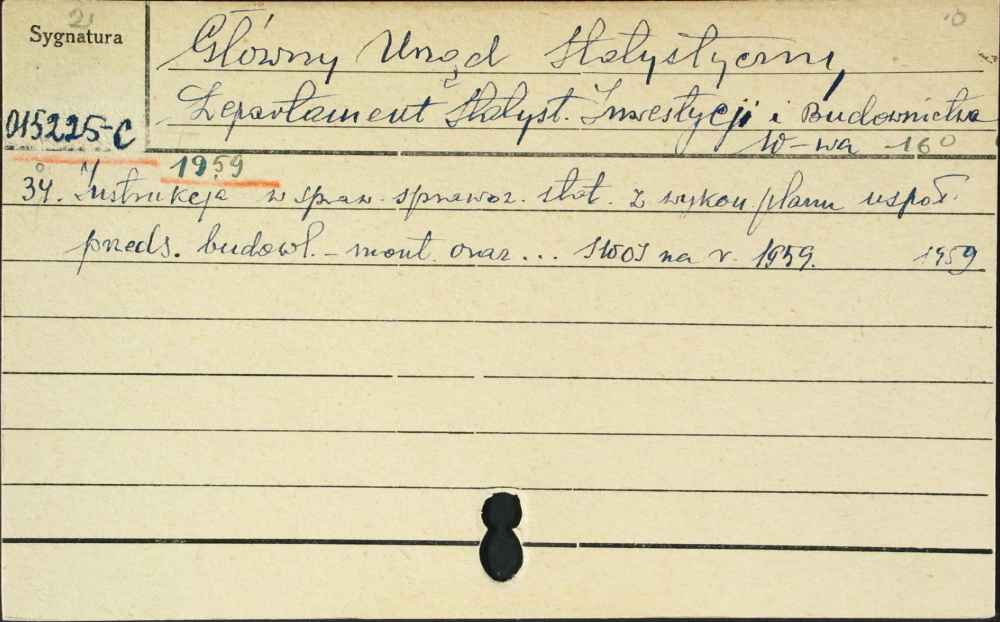 Sygnatura
Główny Urząd Statystyczny,
Departament Statyst. Inwestycji i Budownictwa
015225-C
W-wa 16°
1959
34. Instrukcja w spraw. sprawoz. stat. z wykon. planu uspoł.
przeds. budowl. - mont. oraz ... na r. 1959. 1959